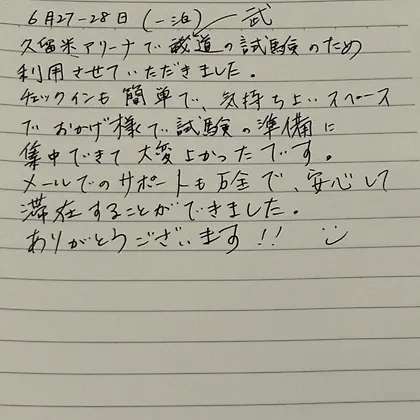 6月27-28日 (一泊) 武
久留米アリーナで武道の試験のため
利用させていただきました。
チェックインも簡単で、気持ちよいスペース
でおかげ様で試験の準備に
集中できて大変よかったです。
メールでのサポートも万全で、安心して
滞在することができました。
ありがとうございます!!